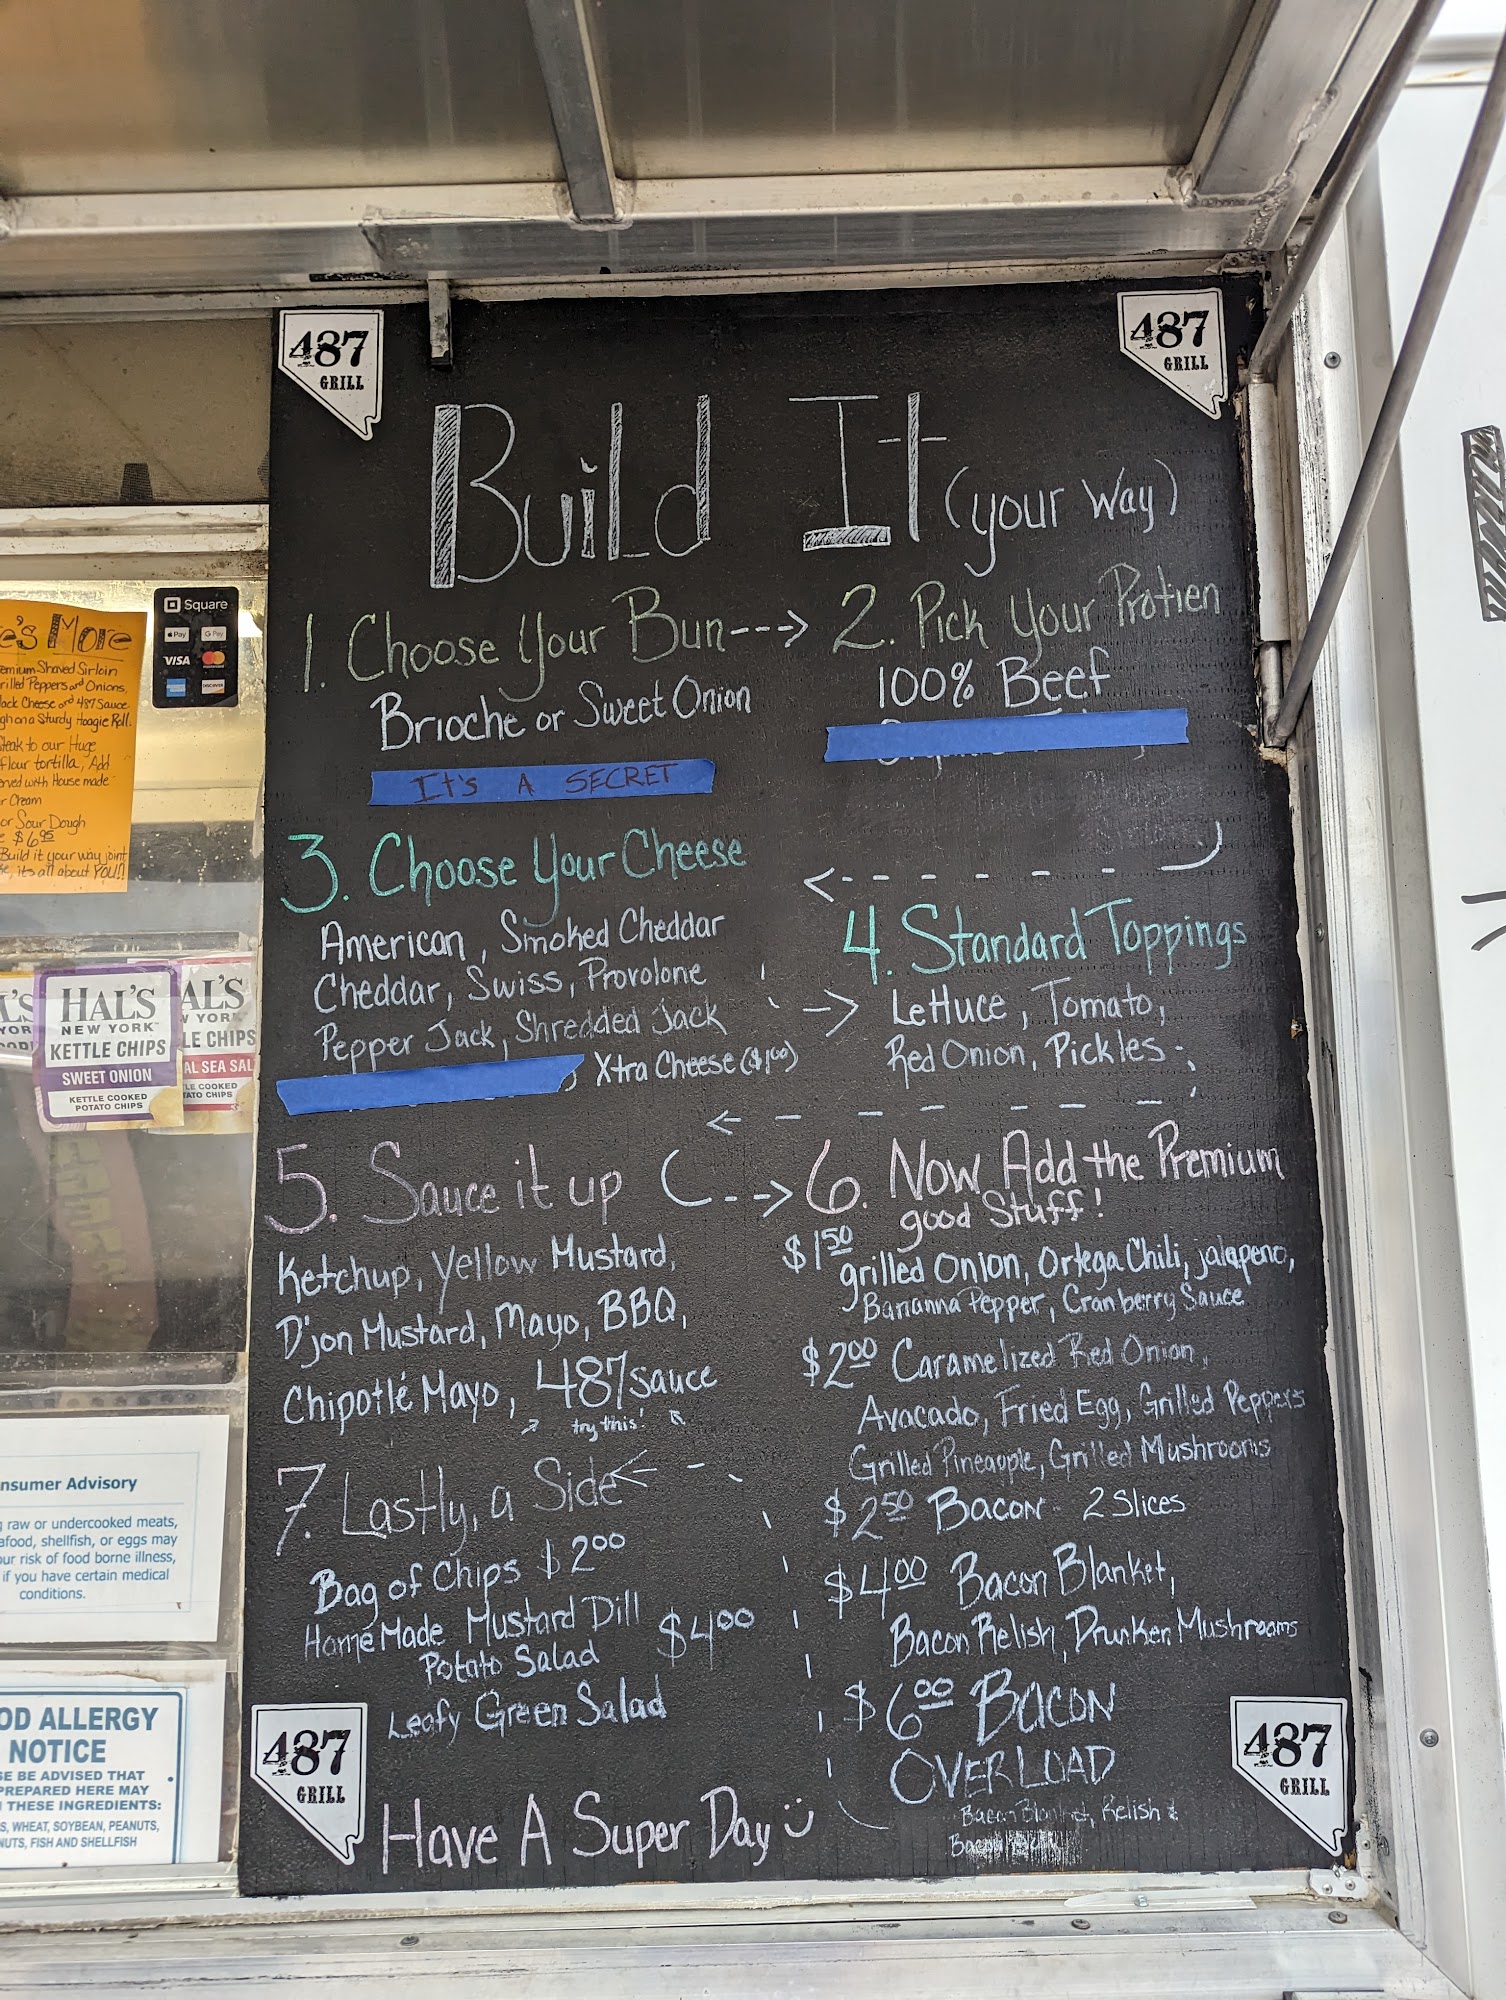 487
GRILL
487
GRILL
Build It (your way)
1. Choose Your Bun--->
Brioche or Sweet Onion
It's A SECRET
2. Pick Your Protien
100% Beef
3. Choose Your Cheese
American, Smoked Cheddar
Cheddar, Swiss, Provolone
Pepper Jack, Shredded Jack
Xtra Cheese ($1.00)
4. Standard Toppings
Lettuce, Tomato,
Red Onion, Pickles
5. Sauce it up
Ketchup, Yellow Mustard,
D'jon Mustard, Mayo, BBQ,
Chipotlé Mayo, 487 sauce
try this!
6. Now Add the Premium
good Stuff!
$1.50 grilled Onion, Ortega Chili, jalapeno,
Bananna Pepper, Cranberry Sauce
$2.00 Caramelized Red Onion,
Avacado, Fried Egg, Grilled Peppers
Grilled Pineapple, Grilled Mushrooms
$2.50 Bacon - 2 Slices
$4.00 Bacon Blanket,
Bacon Relish, Drunken Mushrooms
$6.00 BACON
OVERLOAD
Bacon Blanket, Relish &
Bacon
7. Lastly, a Side
Bag of Chips $2.00
Home Made Mustard Dill
Potato Salad $4.00
Leafy Green Salad
Have A Super Day
487
GRILL
487
GRILL
e's More
emium Shaved Sirloin
rilled Peppers and Onions,
Jack Cheese and 487 Sauce
gh on a Sturdy Hoagie Roll.
Steak to our Huge
flour tortilla, Add
erved with House made
r Cream
or Sour Dough
$6.95
Build it your way joint
e, its all about YOU!!
Square
Pay
G Pay
VISA
mastercard
DISCOVER
HAL'S
NEW YORK
KETTLE CHIPS
SWEET ONION
KETTLE COOKED
POTATO CHIPS
AL'S
W YORK
LE CHIPS
AL SEA SAL
LE COOKED
TATO CHIPS
nsumer Advisory
g raw or undercooked meats,
afood, shellfish, or eggs may
our risk of food borne illness,
if you have certain medical
conditions.
OD ALLERGY
NOTICE
SE BE ADVISED THAT
PREPARED HERE MAY
THESE INGREDIENTS:
S, WHEAT, SOYBEAN, PEANUTS,
NUTS, FISH AND SHELLFISH